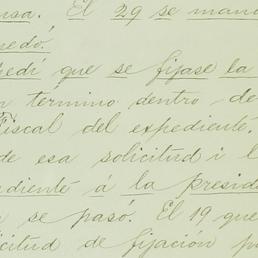 nsa. El 29 se mand
edó.
edí que se fijase la
n termino dentro de
iscal del expediente.
de esa solicitud i l
diente á la presid
se pasó. El 19 que
icitud de fijación p